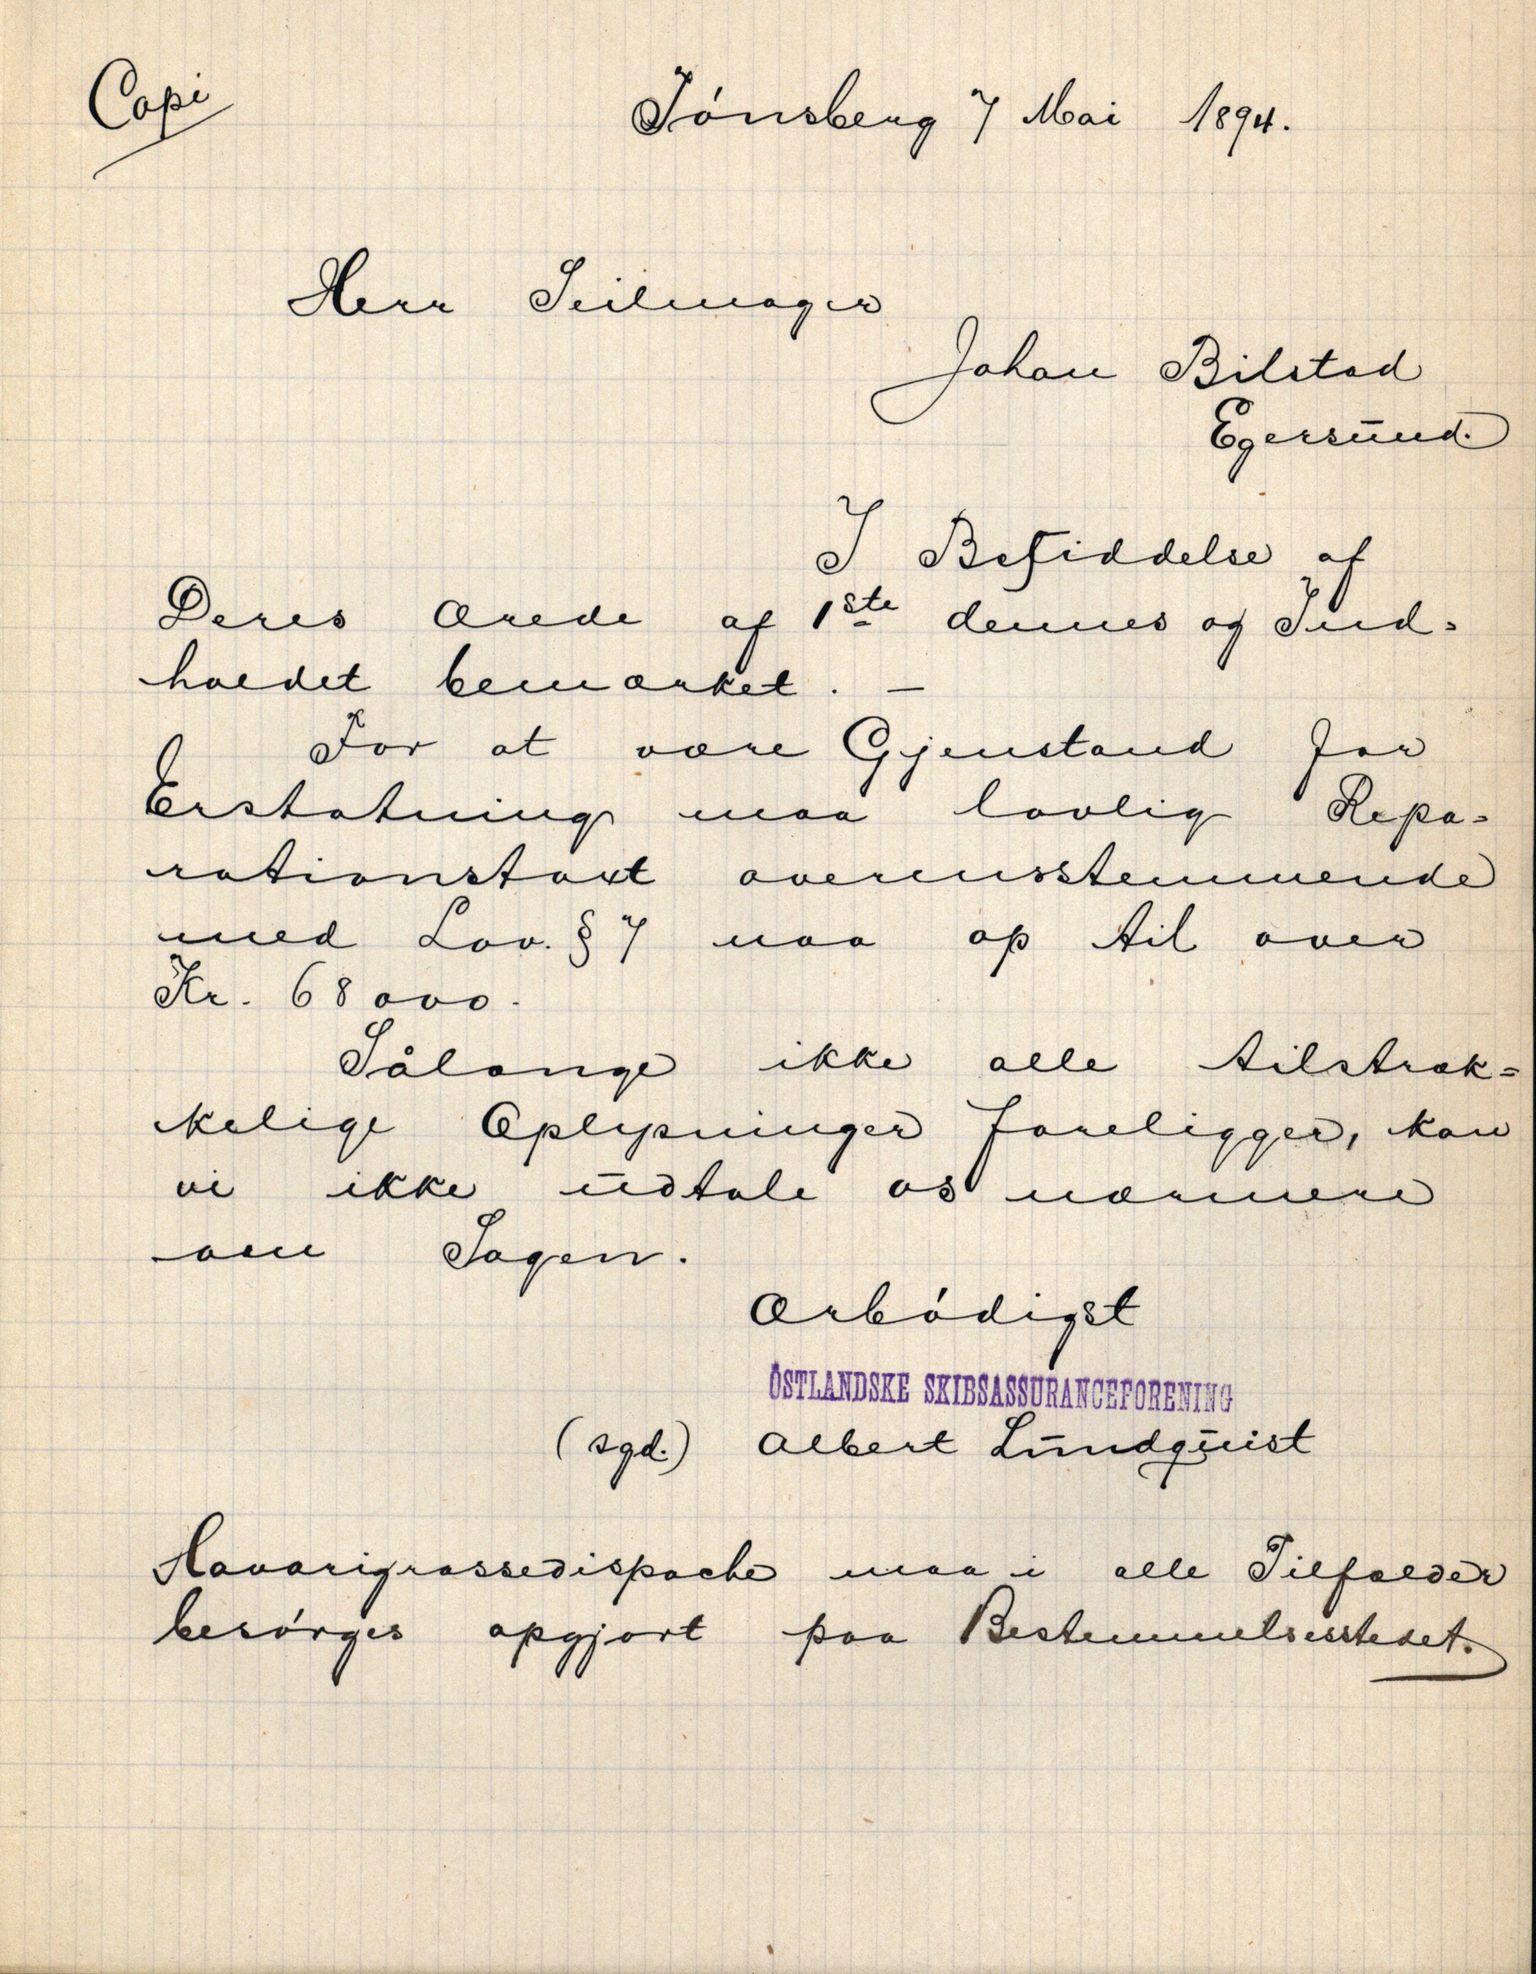 Copi
Tónsberg 7 Mai 1894.
Herr Seilmager
Johan Bilstad
Egersund.
I Besiddelse af
Deres ærede af 1ste dennes og Ind=
holdet bemærket. —
For at være Gjenstand for
Erstatning maa lovlig Repa=
rationstaxt overensstemmende
med Lov. § 7 naa op til over
Kr. 68000.
Sålange ikke alle tilstræk=
kelige Oplysninger foreligger, kan
vi ikke udtale os nærmere
om Sagen.
Ærbódigst
ÖSTLANDSKE SKIBSASSURANCEFORENING
(sgd.) Albert Lundquist
Havarigrossedispache maa i alle Tilfælder
besórges opgjort paa Bestemmelsesstedet.